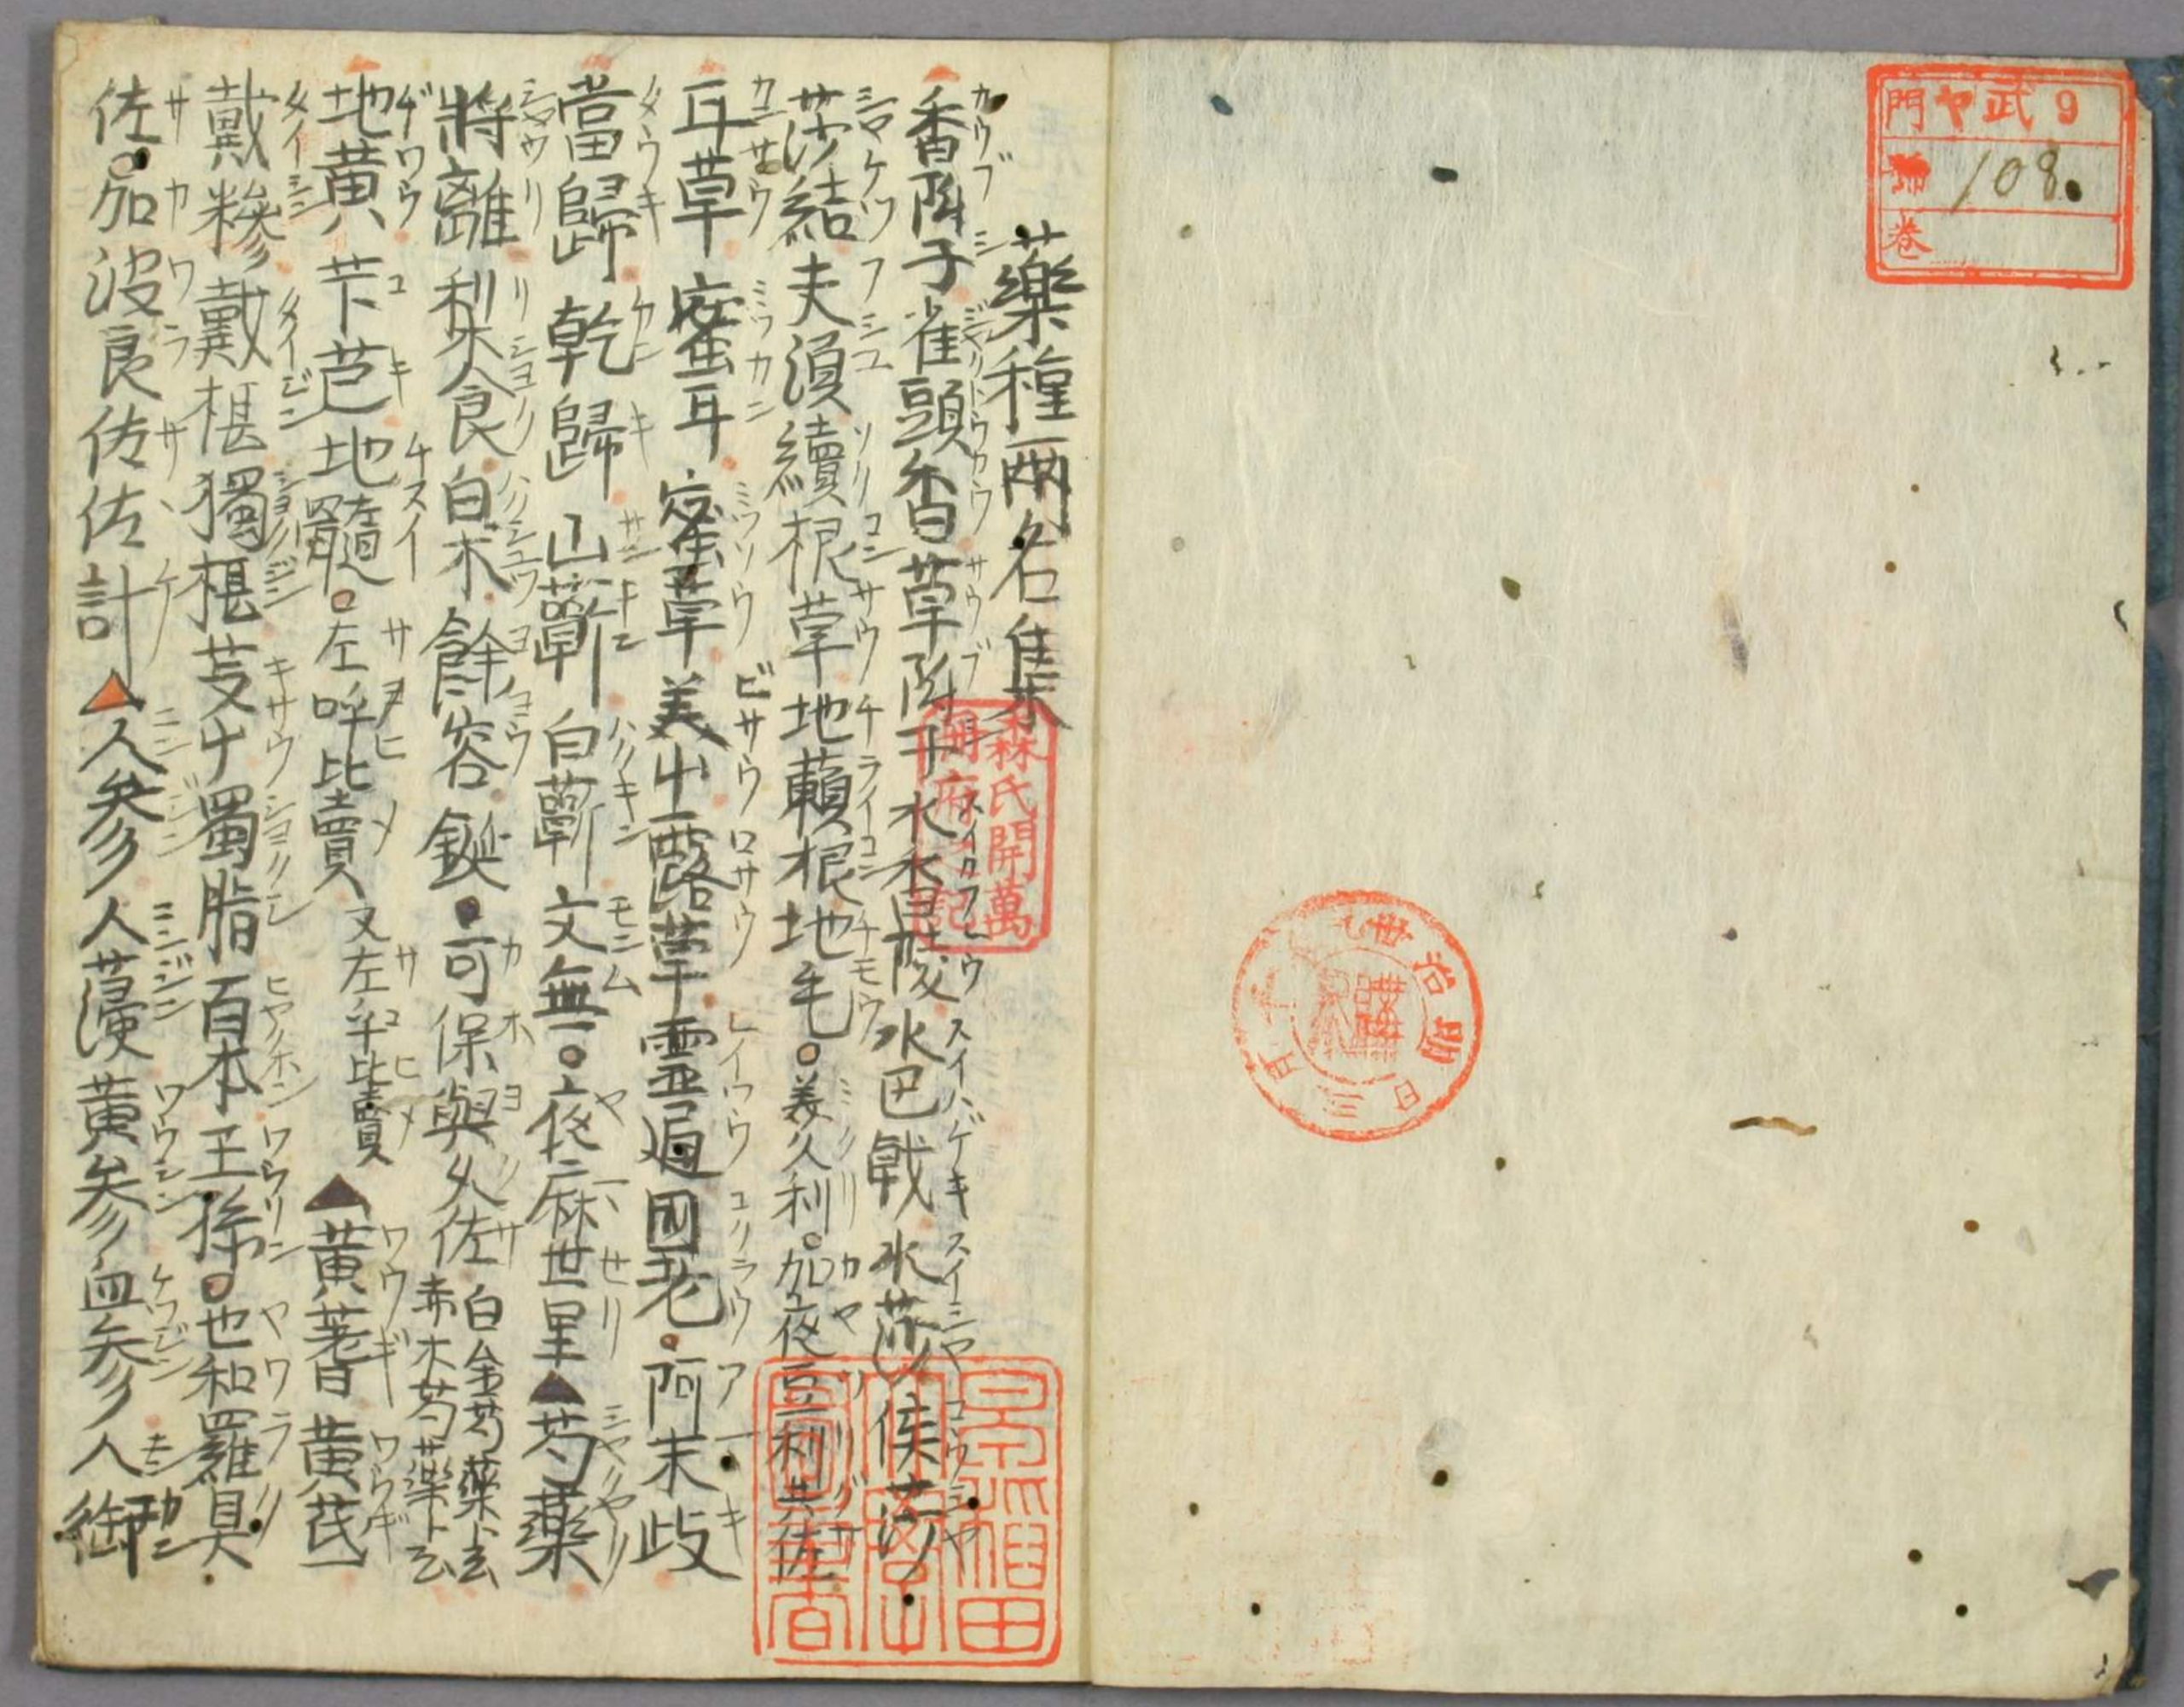 門 ヤ 武 9
號 108
卷
藥種兩名集
香附子 雀頭香 草附子 水香陵 水巴戟 水莎 侯莎
莎結 夫湏 續根草 地藾根 地毛 美久利 加夜豆利共佐
甘草 蜜甘 蜜草 美草 露草 霊通 国老 阿末岐
當歸 乾歸 山蘄 白蘄 文無 夜麻世里 芍藥
將離 利食 白木 餘容 鋋 可保與久佐 白全芍藥ト云 赤木芍藥ト云
地黄 芐 芑 地髓 左呼比賣 又左乎比賣 黄蓍 黄茋
戴糝 戴椹 獨椹 芰草 蜀脂 百本 王孫 也和羅具
佐 加波良佐佐計 人参 人薓 黄参 血参 人銜
森氏開萬冊府之記